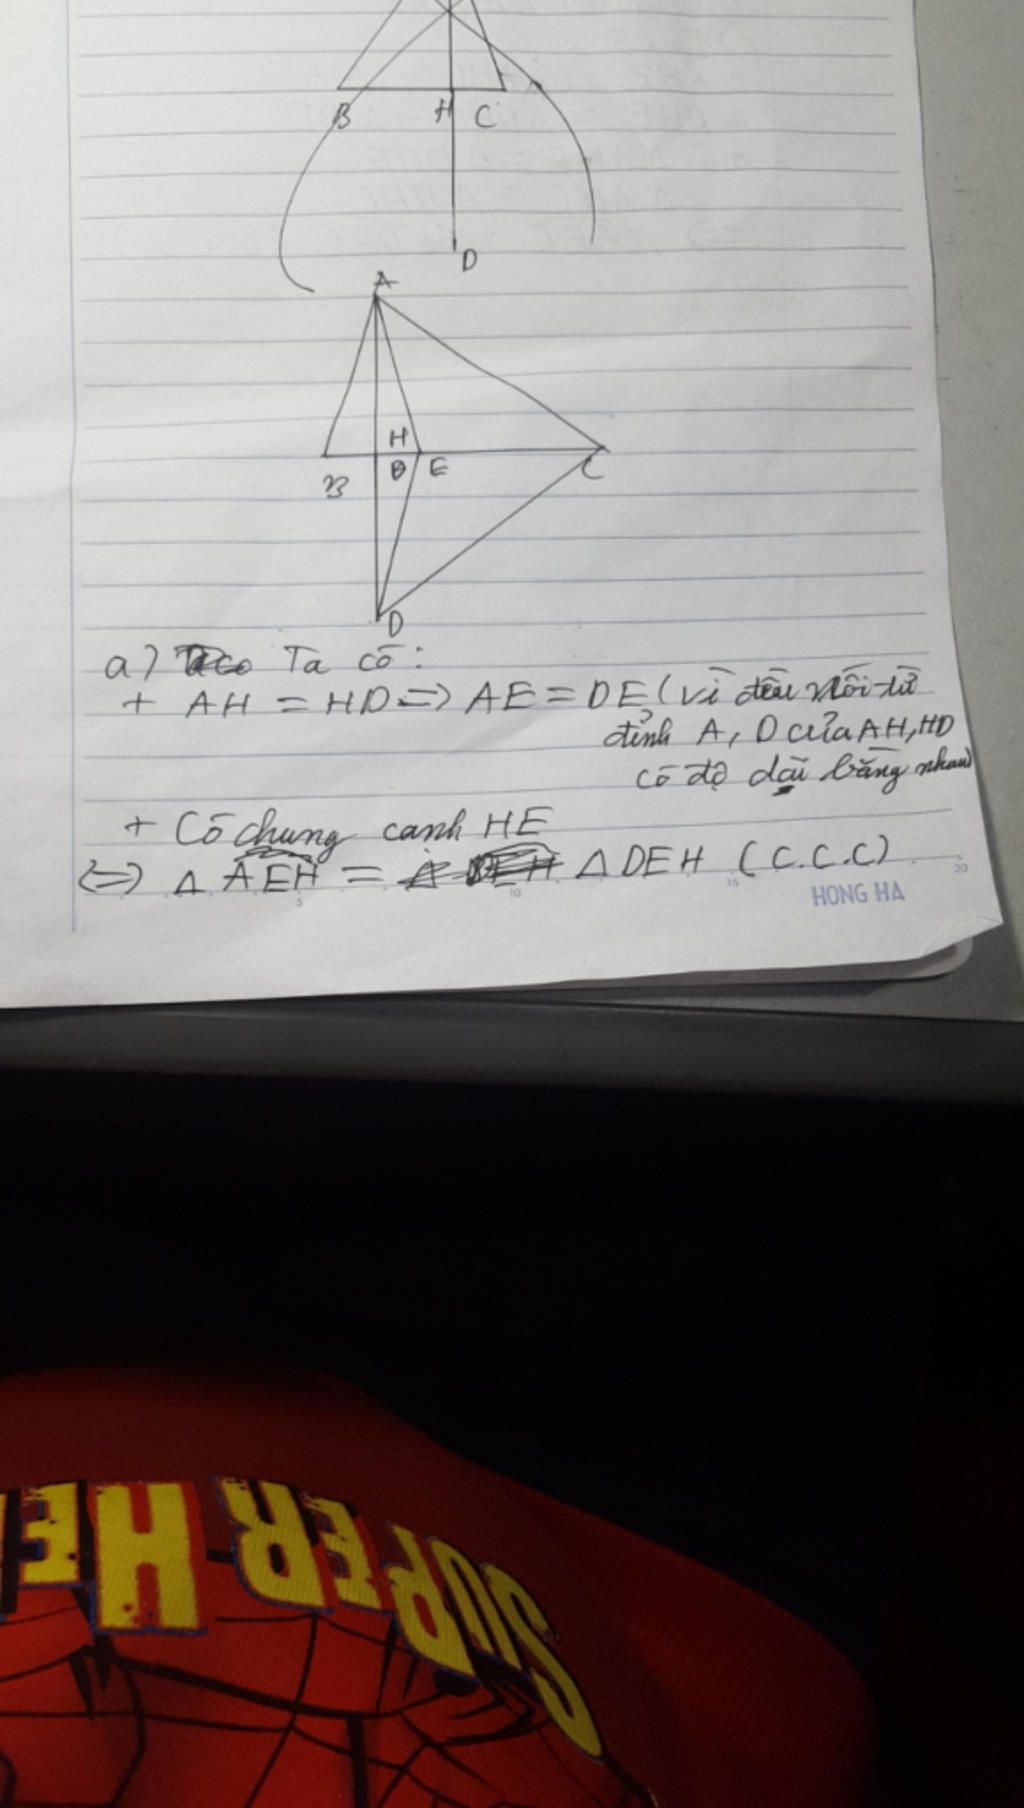 B H C
D
A
H
B E C
D
a) Ta có:
+ AH = HD => AE = DE (vì đều nối từ
đỉnh A, D của AH, HD
có độ dài bằng nhau)
+ Có chung cạnh HE
<=> Δ AEH = Δ DEH (C.C.C)
5 10 15 20
HONG HA
SUPER HE